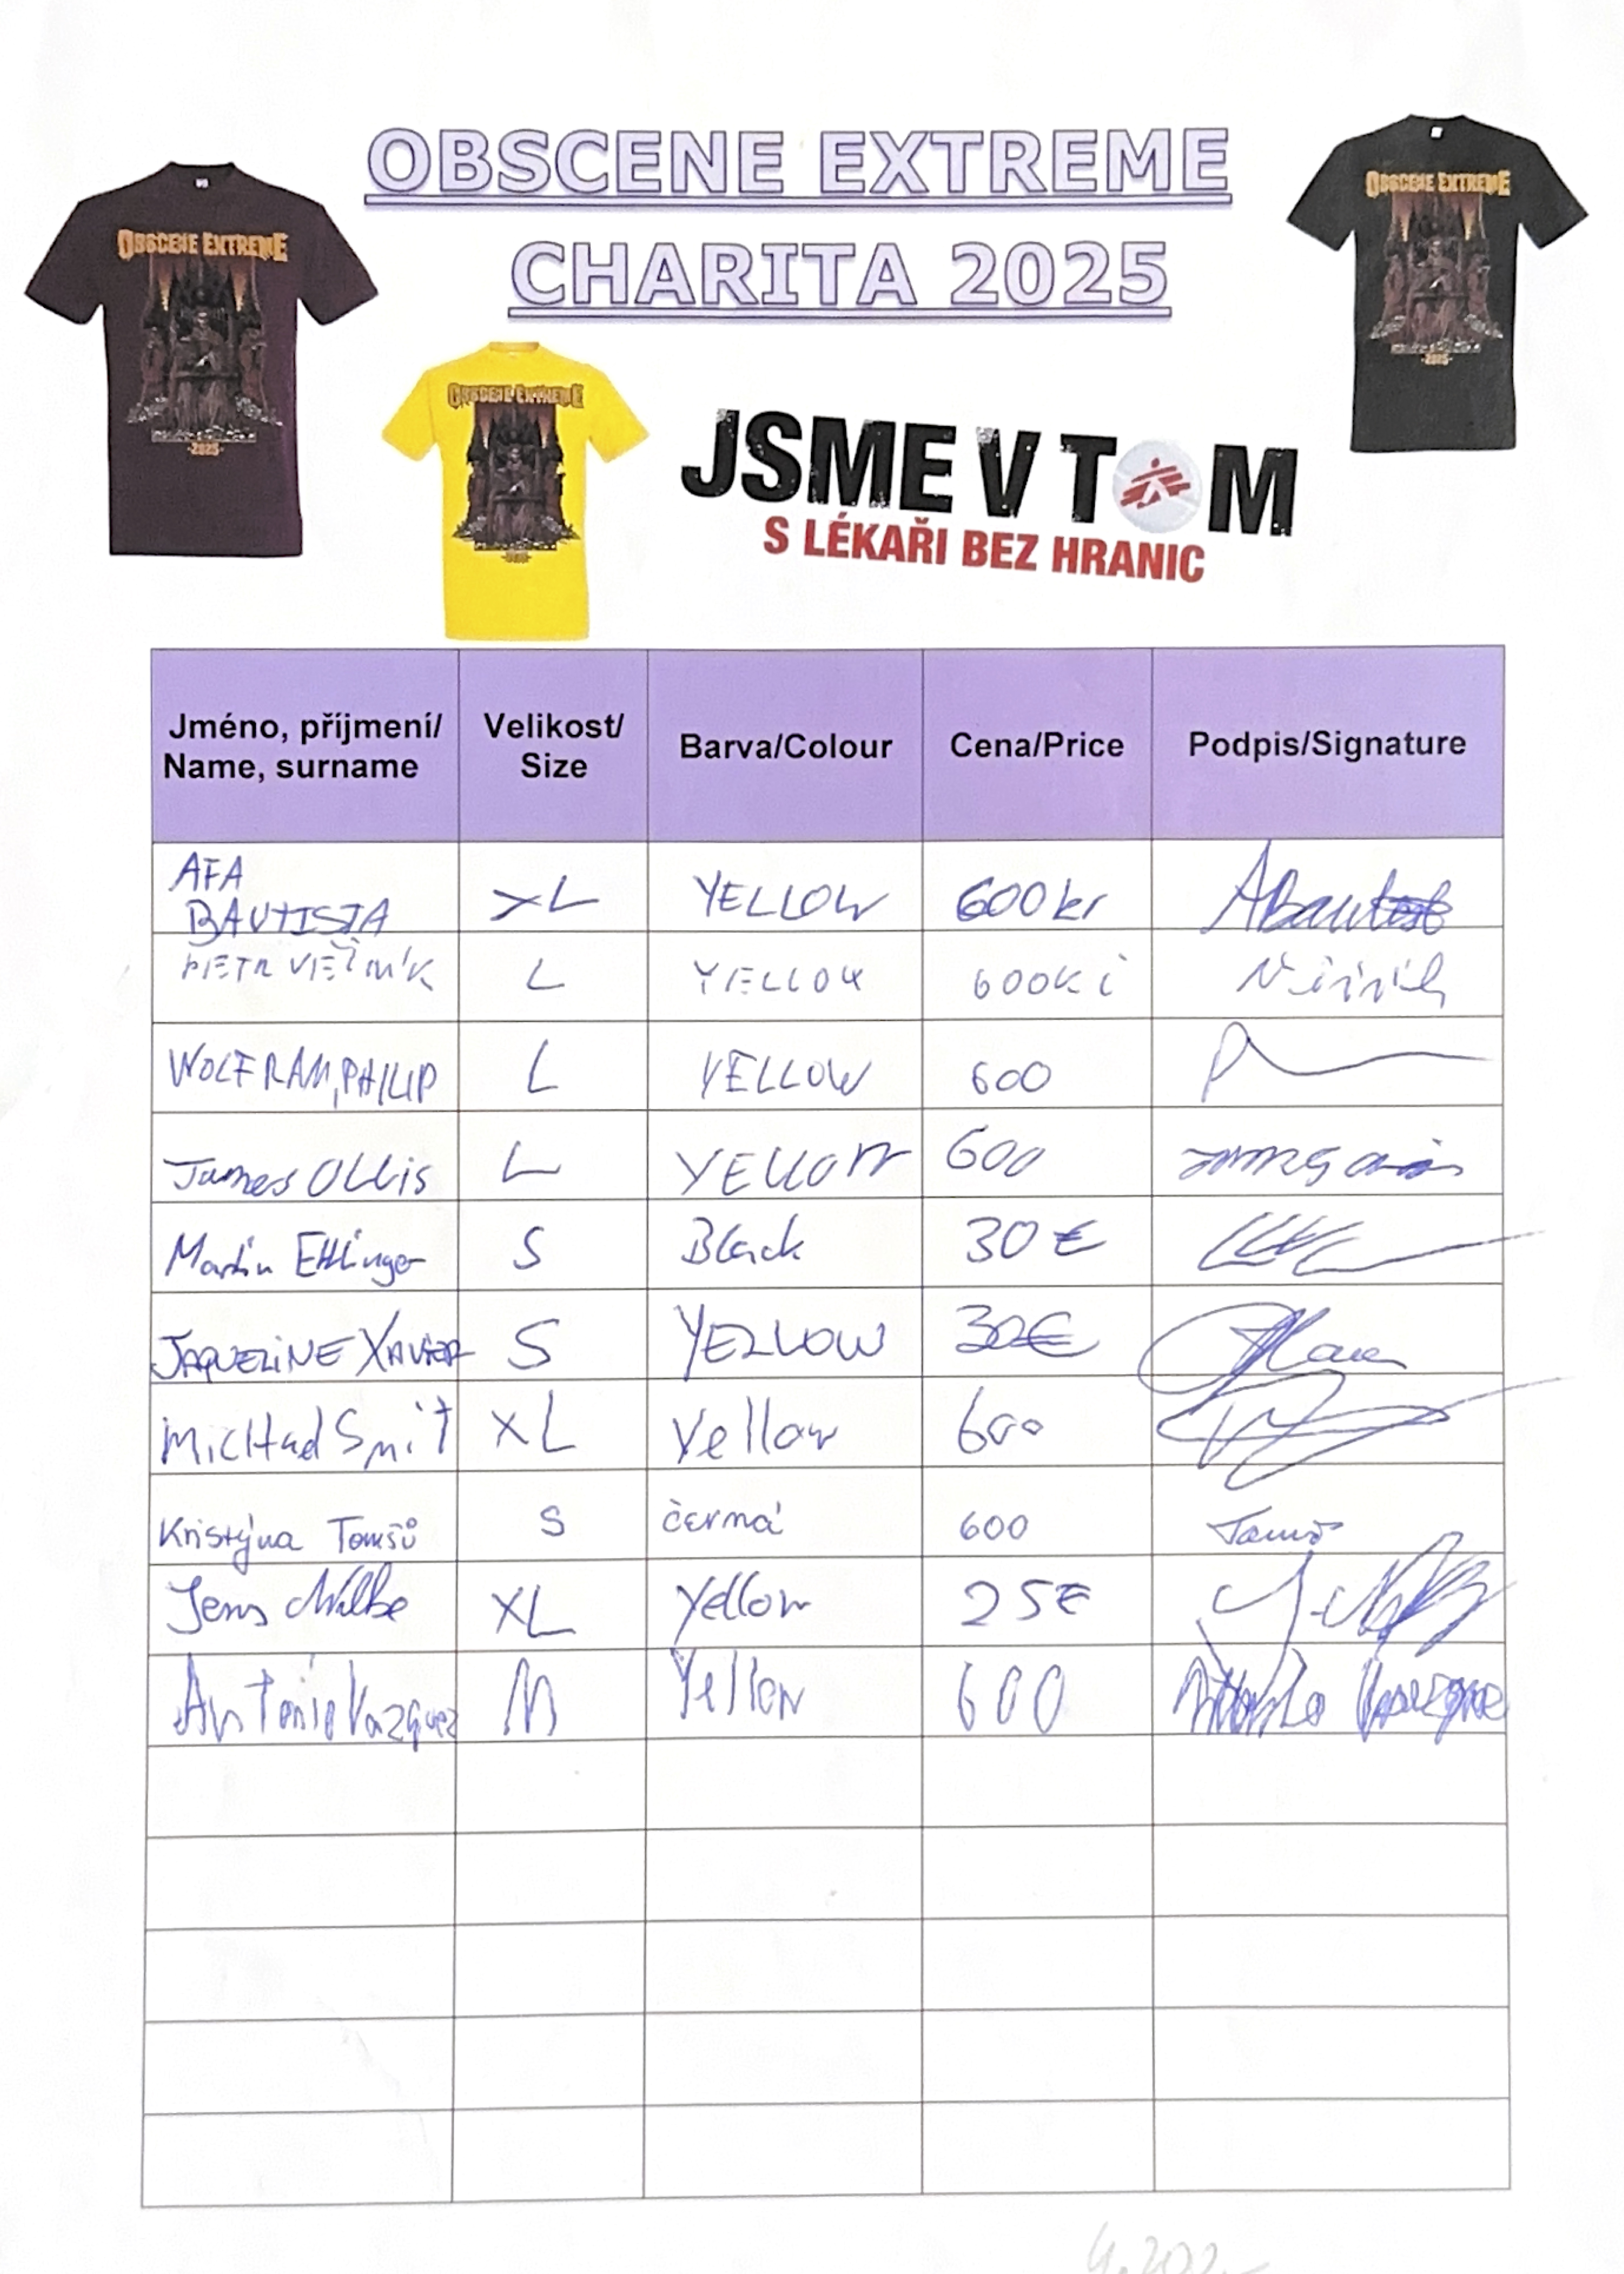 OBSCENE EXTREME
CHARITA 2025
OBSCENE EXTREME
-2025-
OBSCENE EXTREME
-2025-
OBSCENE EXTREME
JSME V TOM
S LÉKAŘI BEZ HRANIC
Jméno, příjmení/ Name, surname Velikost/ Size Barva/Colour Cena/Price Podpis/Signature
AFA BAUTISTA XL YELLOW 600 kr ABautist
PETR L YELLOW 600Kč
WOLFRAM, PHILIP L YELLOW 600
James Ollis L YELLOW 600
Martin Ettlinger S Black 30 €
JAQUELINE XAVIER S YELLOW 30€
Michael Smit XL Yellow 600
Kristýna Tomšů S černá 600 Tomšů
Jens Wilke XL Yellow 25€
Antonio Vazquez M Yellow 600 Antonio Vazquez
4.200.-